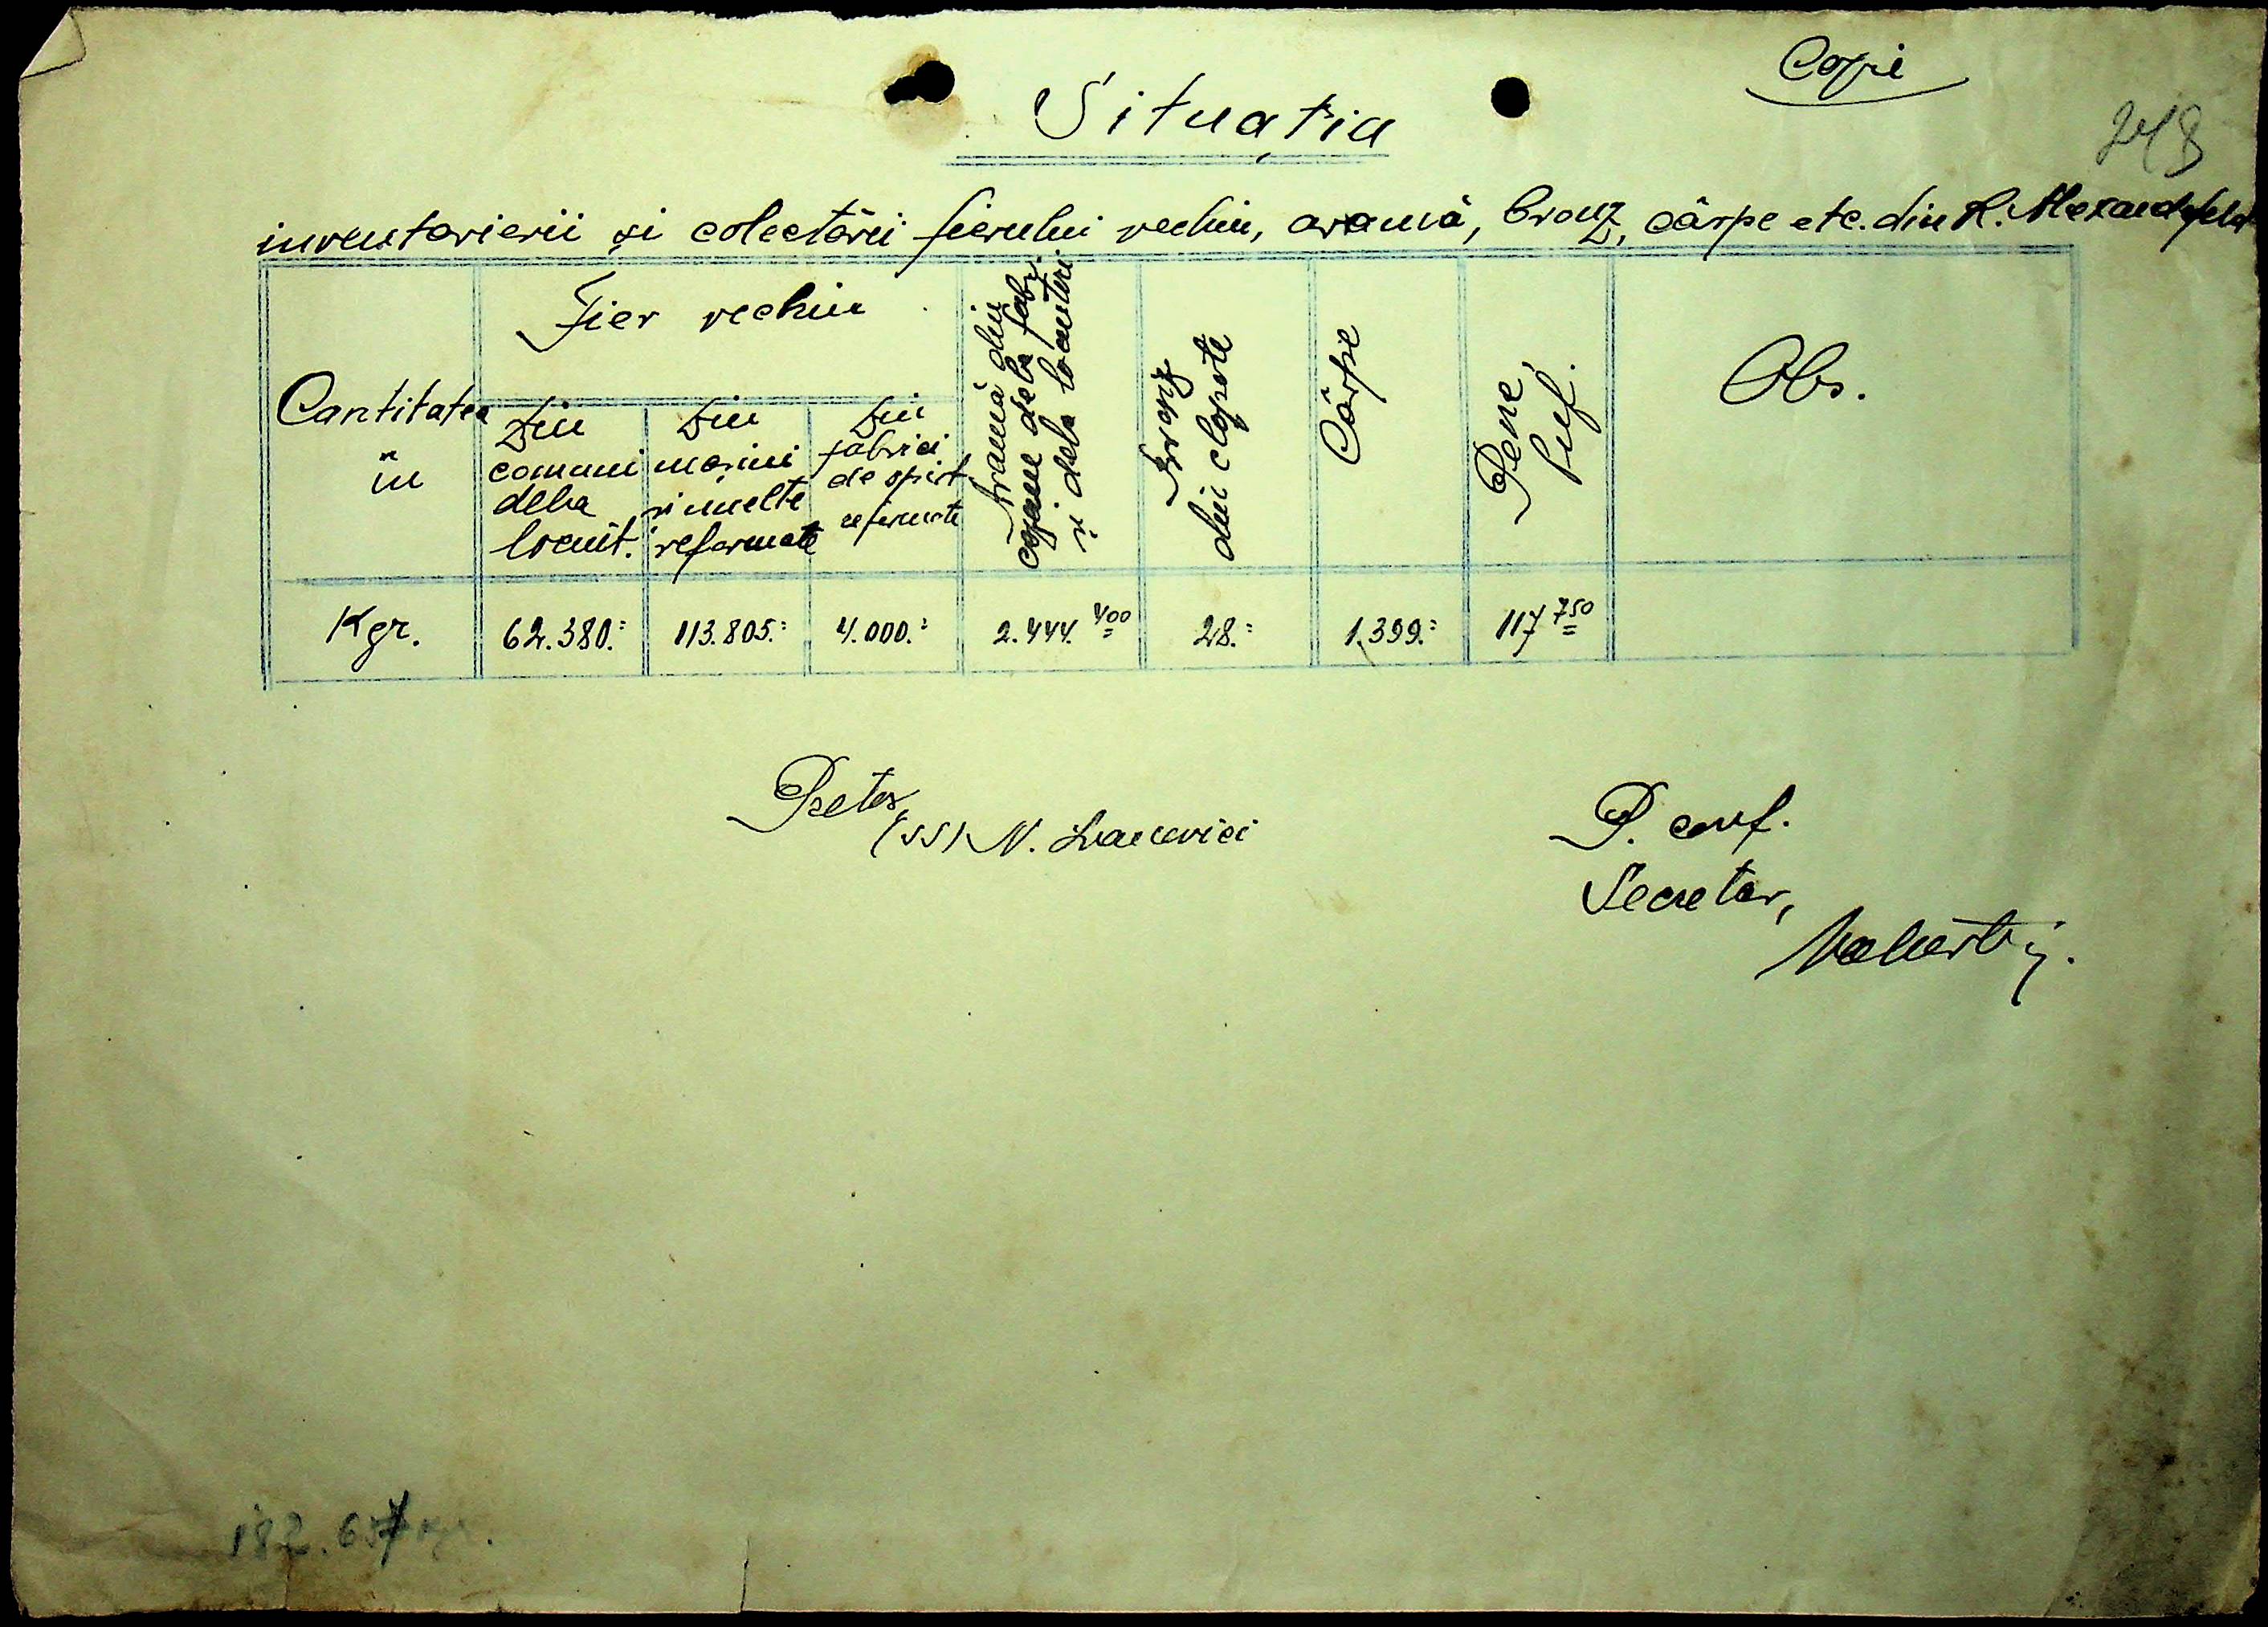 Copie
248
Situația
inventarierii și colectării fierului vechiu, aramă, bronz, cârpe etc. din R. Alexanderfeld
Cantitatea
în
Fier vechiu
Din
comuni
dela
locuit.
Din
mașini
și unelte
reformate
Din
fabrici
de spirt
reformate
Aramă din
cazane dela fabr.
și dela locuitori
Bronz
din clopote
Cârpe
Pene,
puf.
Obs.
Kgr. 62.380.= 113.805.= 4.000.= 2.444.400 28.= 1.399.= 117 750
Pretor,
(ss) N.
P. conf.
Secretar,
182.657 kgr.